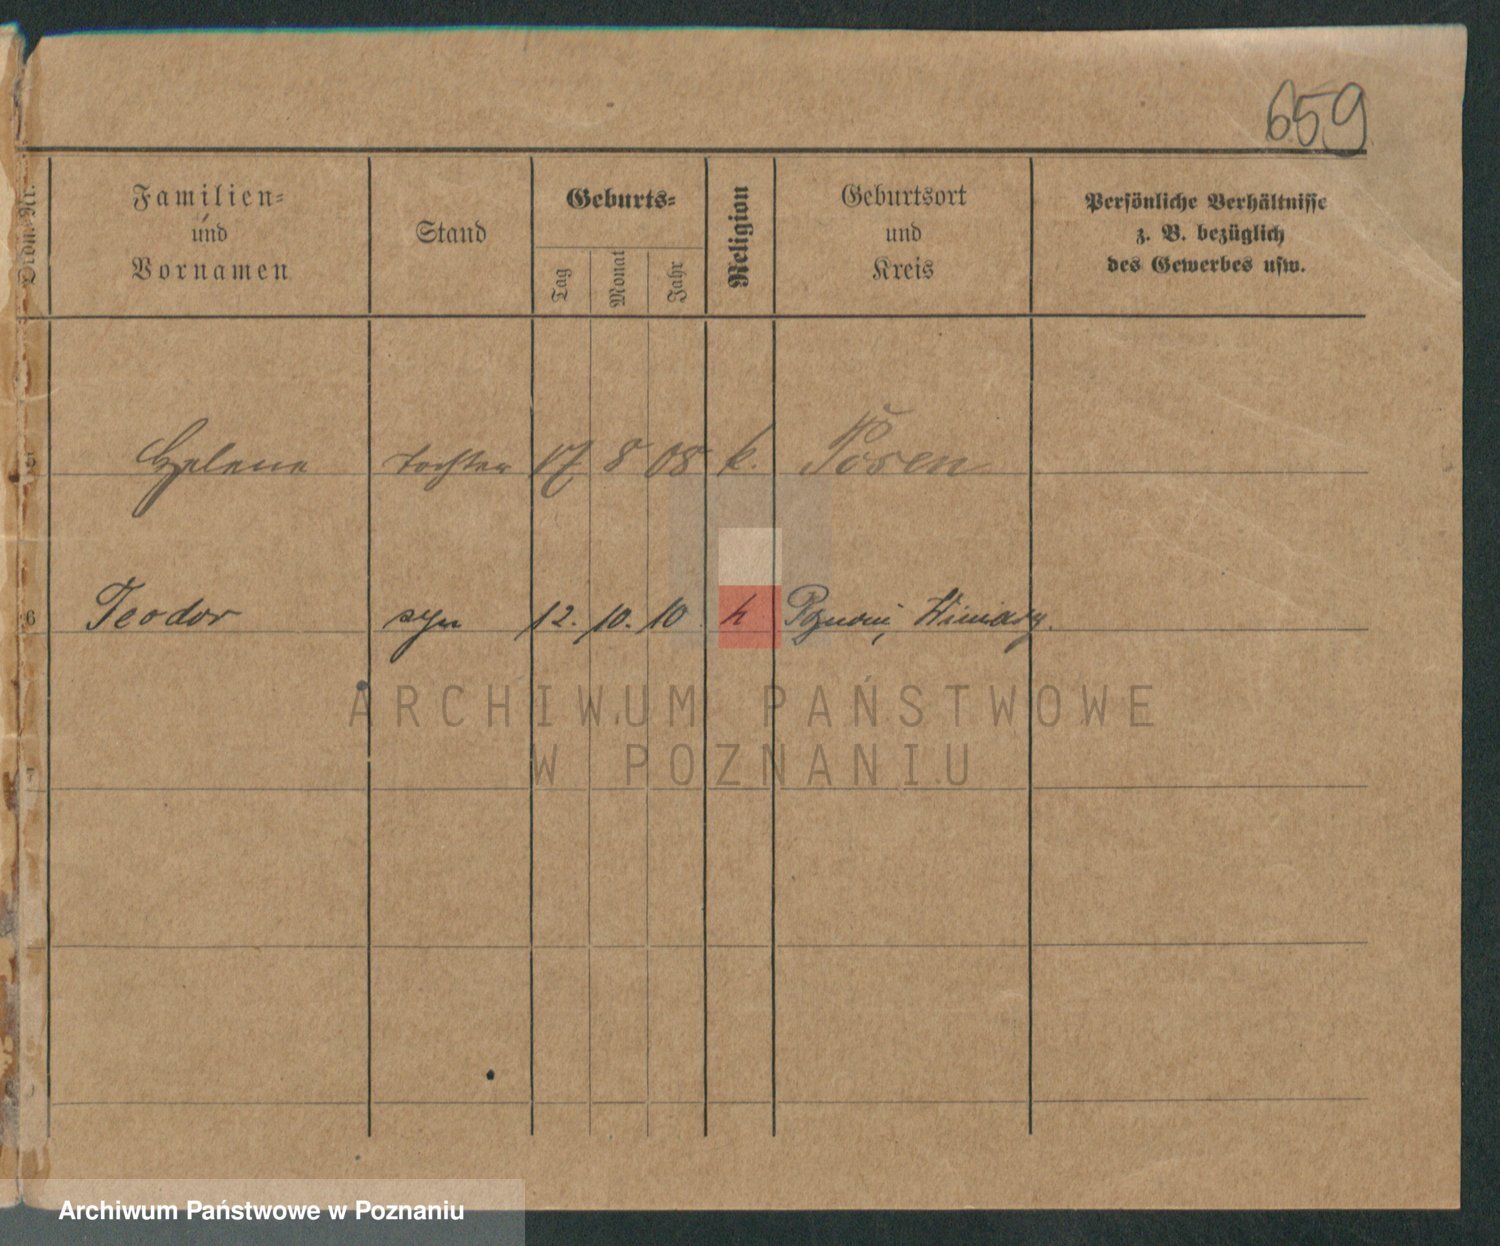 659
Ordn. Nr.
Familien-
und
Vornamen
Stand
Geburts-
Tag
Monat
Jahr
Religion
Geburtsort
und
Kreis
Persönliche Verhältnisse
z. B. bezüglich
des Gewerbes usw.
5 Helene Tochter 17 8 08 k. Posen
6 Teodor syn 12. 10. 10. k Poznań, Winiary.
7
ARCHIWUM PAŃSTWOWE
W POZNANIU
Archiwum Państwowe w Poznaniu